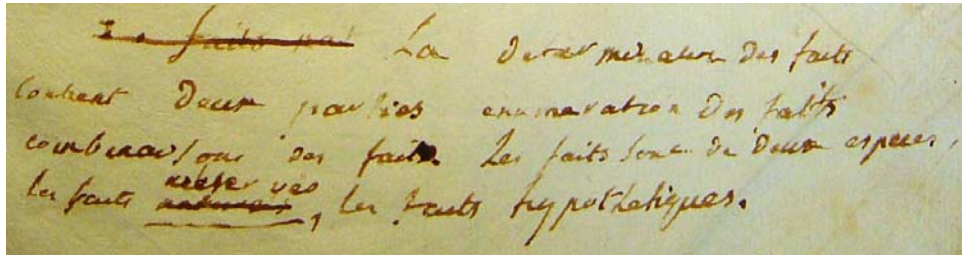 faits par La determination des faits
contient deux parties enumeration des faits
combinaisons des faits. Les faits sont de deux especes,
les faits observés, les faits hypothetiques.